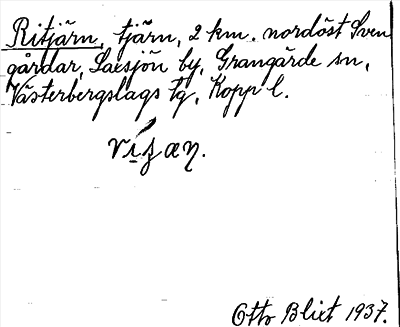 Ritjärn, tjärn, 2 km. nordöst Sven
gårdar, Saesjön by, Grangärde sn,
Västerbergslags tg, Kopp l.
Otto Blixt 1937.